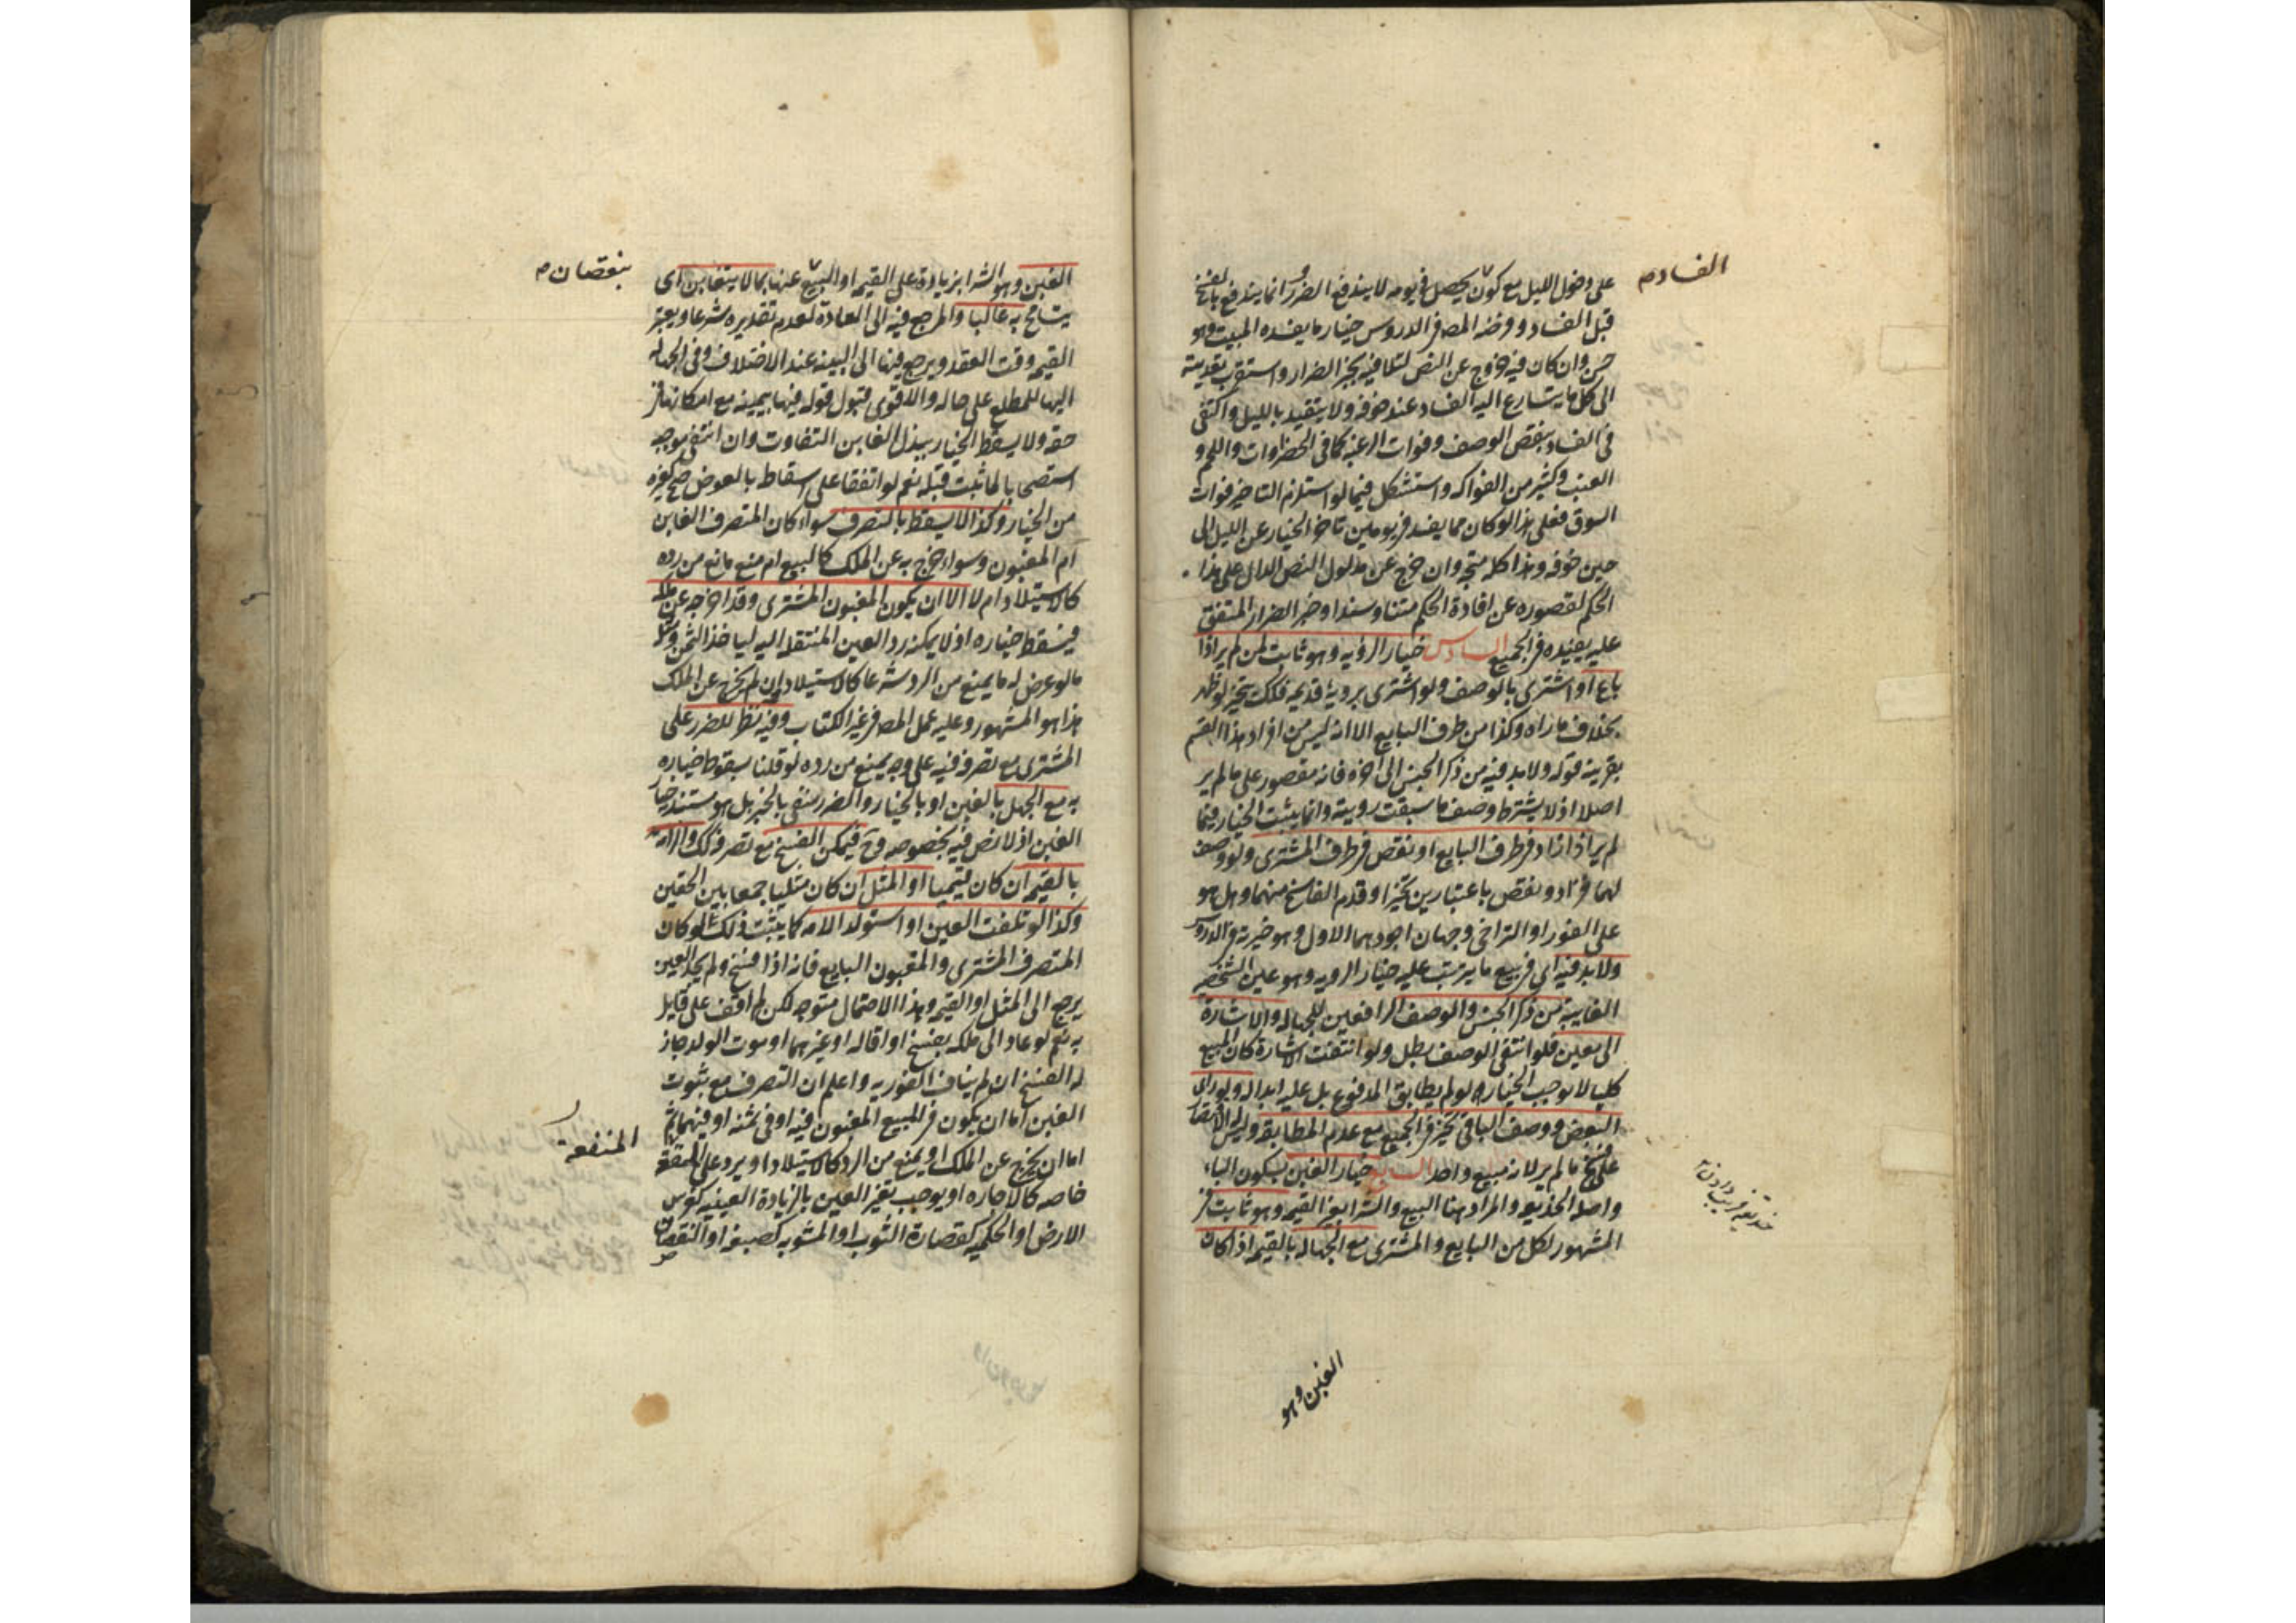 على دخول الليل مع كون يحصل في يومه لا يندفع الضرر وانما يندفع بالفسخ
الفساد م
قبل الفساد وفرضه المصـ في الدروس خيار ما يفسده المبيت وهو
حسن وان كان فيه خروج عن النص لتلافيه بخبر الضرار واستقرب تعديته
الى كل ما يتسارع اليه الفساد عند خوفه ولا يتقيد بالليل واكتفى
في الفساد بنقص الوصف وفوات الرغبة كما في الخضراوات واللحم و
العنب وكثير من الفواكه واستشكل فيما لو استلزم التاخير فوات
السوق فعلى هذا لو كان مما يفسد في يومين تاخر الخيار عن الليل الى
حين خوفه وهذا كله متجه وان خرج عن مدلول النص الدال على هذا
الحكم لقصوره عن افادة الحكم متنا وسندا وخبر الضرار المتفق
عليه يفيده في الجميع السادس خيار الرؤيه وهو ثابت لمن لم ير اذا
باع او اشترى بالوصف ولو اشترى بروية قديمه فكذلك يتخير لو ظهر
بخلاف ما راه وكذا من طرف البايع الا انه ليس من افراد هذا القسم
بقرينة قوله ولا بد فيه من ذكر الجنس الى اخره فانه مقصور على ما لم ير
اصلا اذ لا يشترط وصف ما سبقت رويته وانما يثبت الخيار فيما
لم ير اذا زاد في طرف البايع او نقص في طرف المشترى ولو وصف
لهما فزاد ونقص باعتبارين تخيرا وقدم الفاسخ منهما وهل هو
على الفور او التراخي وجهان اجودهما الاول وهو خيرته في الدروس
ولا بد فيه اى في بيع ما يترتب عليه خيار الرويه وهو عين الشخصيه
الغايبة من ذكر الجنس والوصف الرافعين للجهاله والاشارة
الى معين فلو انتفى الوصف بطل ولو انتفت الاشارة كان المبيع
كليا لا يوجب الخيار لو لم يطابق المدفوع بل عليه ابداله ولو راى
البعض ووصف الباقى تخير في الجميع مع عدم المطابقه وليس له الاقتصار
على فسخ ما لم ير لانه مبيع واحد السابع خيار الغبن بسكون الباء
واصله الخديعه والمراد هنا البيع والشرا بغير القيمه وهو ثابت في
المشهور لكل من البايع والمشترى مع الجهاله بالقيمه اذا كان
الغبن وهو
الغبن وهو الشرا بزيادة على القيمه او البيع عنها بما لا يتغابن اى
بنقصان م
يتسامح به غالبا والمرجع فيه الى العادة لعدم تقديره شرعا ويعتبر
القيمه وقت العقد ويرجع فيها الى البينه عند الاختلاف وفي الجهاله
اليها للمطلع على حاله والاقوى قبول قوله فيها بيمينه مع امكانها في
حقه ولا يسقط الخيار ببذل الغابن التفاوت وان انتفى موجبه
استصحابا لما ثبت قبله نعم لو اتفقا على اسقاطه بالعوض صح كغيره
من الخيار وكذا لا يسقط بالتصرف سواء كان المتصرف الغابن
ام المغبون وسواء خرج به عن الملك كالبيع ام منع مانع من رده
كالاستيلاد ام لا الا ان يكون المغبون المشترى وقد اخرجه عن ملكه
فيسقط خياره اذ لا يمكنه رد العين المنتقله اليه لياخذ الثمن ومثله
ما لو عرض له ما يمنع من الرد شرعا كالاستيلاد وان لم يخرج عن الملك
هذا هو المشهور وعليه عمل المصـ في غير الكتاب وفيه نظر للضرر على
المشترى مع تصرفه فيه على وجه يمنع من رده لو قلنا بسقوط خياره
به مع الجهل بالغبن او بالخيار والضرر منفى بالخبر بل هو مستند خيار
الغبن اذ لا نص فيه بخصوصه وح فيمكن الفسخ مع تصرفه كذلك والزامه
بالقيمه ان كان قيميا او المثل ان كان مثليا جمعا بين الحقين
وكذا لو تلفت العين او استولد الامه كما يثبت ذلك لو كان
المتصرف المشترى والمغبون البايع فانه اذا فسخ ولم يجد العين
يرجع الى المثل او القيمه وهذا الاحتمال متوجه لكن لم اقف على قايل
به نعم لو عاد الى ملكه بفسخ او اقاله او غيرهما او موت الولد جاز
له الفسخ ان لم يناف الفوريه واعلم ان التصرف مع ثبوت
الغبن اما ان يكون في المبيع المغبون فيه او في ثمنه او فيهما ثم
اما ان يخرج عن الملك او يمنع من الرد كالاستيلاد او يرد على المنفعة
المنفعة
خاصه كالاجاره او يوجب تغير العين بالزيادة العينيه كغرس
الارض او الحكميه كقصارة الثوب او المشوبه كصبغه او النقصان